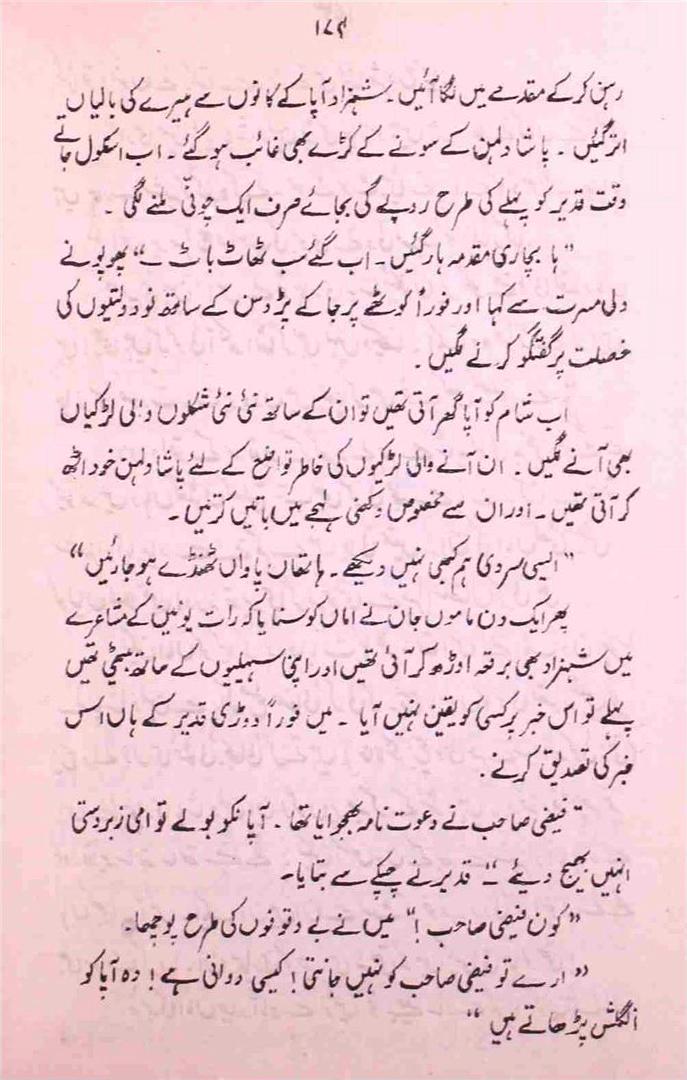 ۱۷۹
رہن کر کے مقدمے میں لگا آئیں۔ شہزاد آپا کے کانوں سے ہیرے کی بالیاں
اتر گئیں۔ پاشا دلہن کے سونے کے کڑے بھی غائب ہو گئے۔ اب اسکول جاتے
وقت قدیر کو پہلے کی طرح روپے کی بجائے صرف ایک چونّی ملنے لگی۔
"ہا بچاری مقدمہ ہار گئیں۔ اب گئے سب ٹھاٹ باٹ۔" پھوپو نے
دلی مسرت سے کہا اور فوراً کوٹھے پر جا کے پڑوسن کے ساتھ نو دولتیوں کی
خصلت پر گفتگو کرنے لگیں۔
اب شام کو آپا گھر آتی تھیں تو ان کے ساتھ نئی نئی شکلوں والی لڑکیاں
بھی آنے لگیں۔ ان آنے والی لڑکیوں کی خاطر تواضع کے لئے پاشا دلہن خود اٹھ
کر آتی تھیں۔ اور ان سے مخصوص دکھنی لہجے میں باتیں کرتیں۔
"ایسی سردی ہم کبھی نہیں دیکھے۔ ہاتھاں پاواں ٹھنڈے ہو جارئیں"
پھر ایک دن ماموں جان نے اماں کو سنایا کہ رات یونین کے مشاعرے
میں شہزاد بھی برقعہ اوڑھ کر آئی تھیں اور اپنی سہیلیوں کے ساتھ بیٹھی تھیں
پہلے تو اس خبر پر کسی کو یقین نہیں آیا۔ میں فوراً دوڑی قدیر کے ہاں اس
خبر کی تصدیق کرنے۔
"فیضی صاحب نے دعوت نامہ بھجوایا تھا۔ آپا نکو بولے تو امی زبردستی
انہیں بھیج دیئے۔" قدیر نے چپکے سے بتایا۔
"کون فیضی صاحب!" میں نے بے وقوفوں کی طرح پوچھا۔
"ارے تو فیضی صاحب کو نہیں جانتی! کیسی دوانی ہے! وہ آپا کو
انگلش پڑھاتے ہیں"